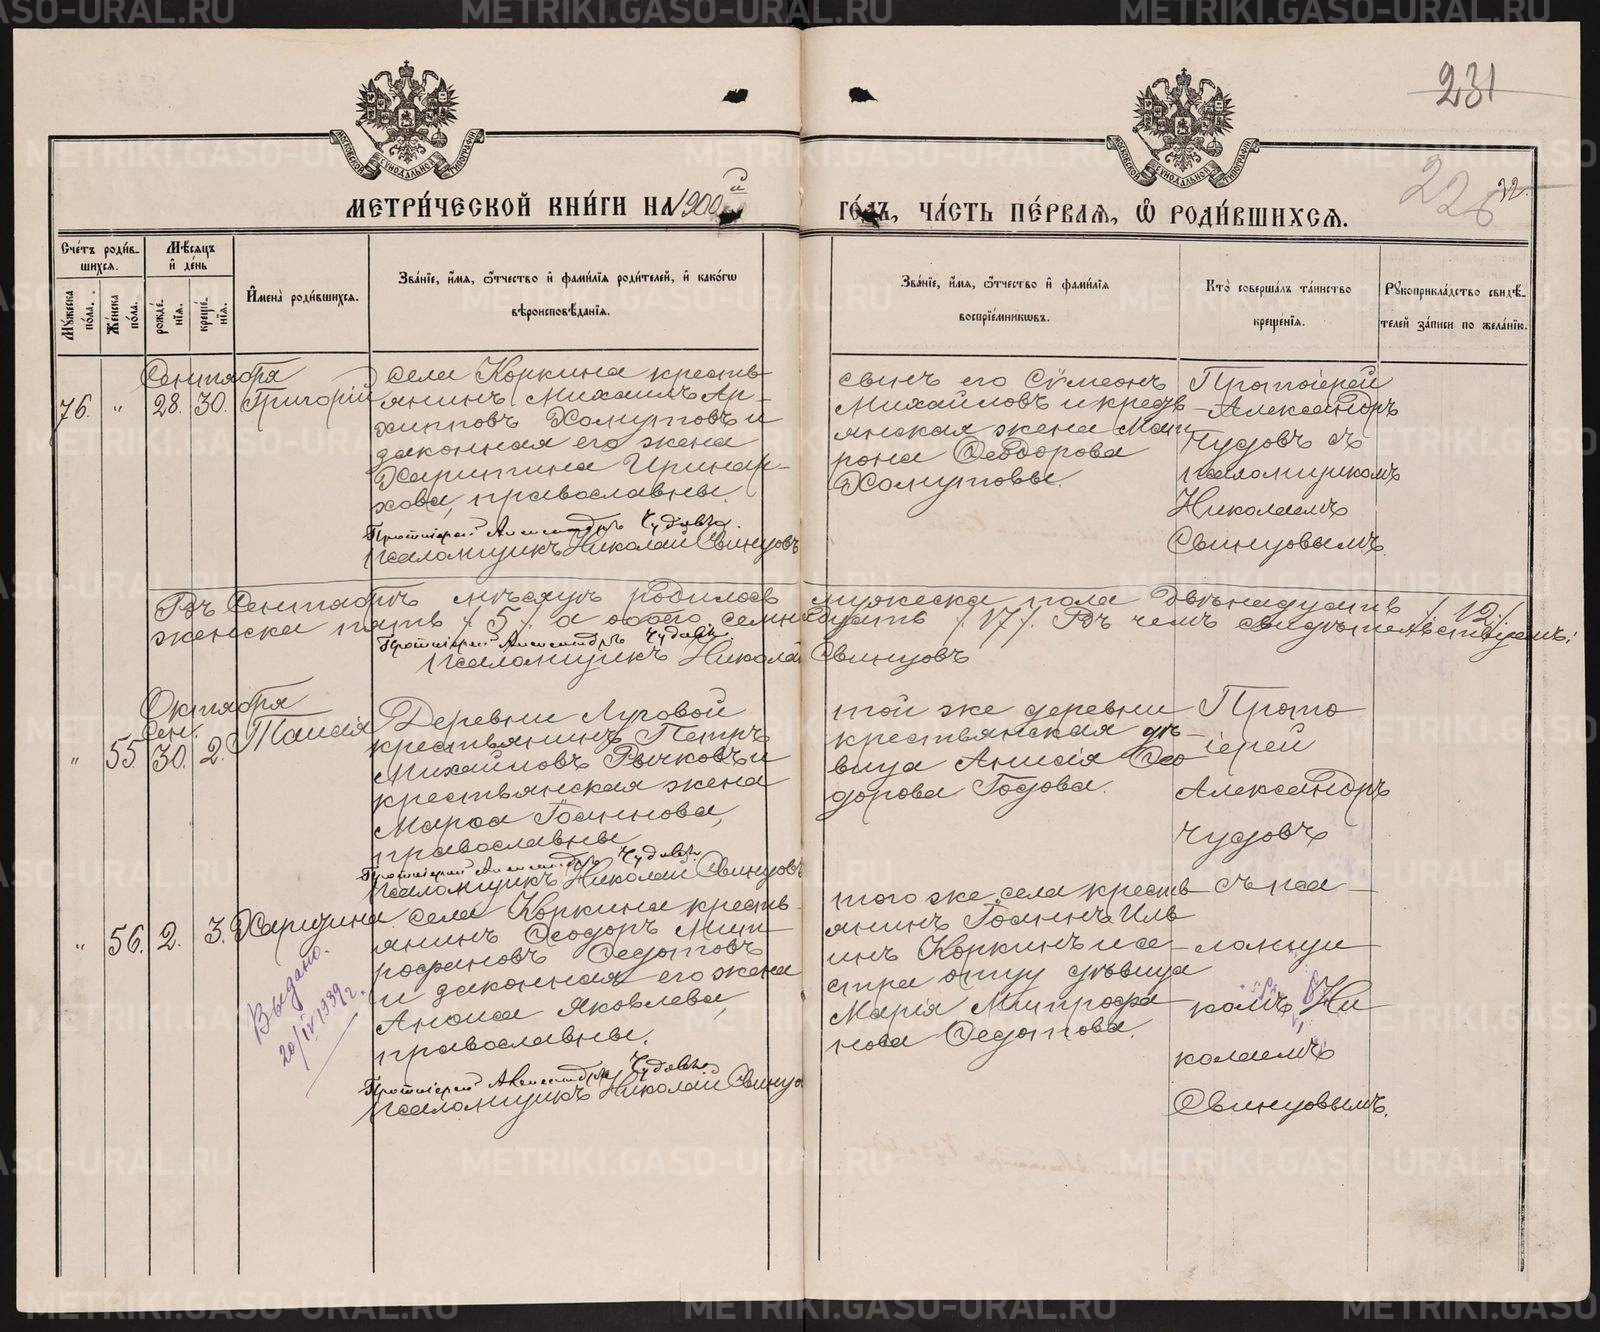 231
226
22.
МОСКОВСКОЙ СѴНОДАЛЬНОЙ ТИПОГРАФІИ
МОСКОВСКОЙ СѴНОДАЛЬНОЙ ТИПОГРАФІИ
МЕТРИ́ЧЕСКОЙ КНИ́ГИ НА 1900й ГО́ДЪ, ЧА́СТЬ ПЕ́РВАЯ, Ѡ҆ РОДИ́ВШИХСЯ.
Сче́тъ роди́в-
шихся.
Мꙋ́жеска по́ла.
Же́нска по́ла.
Мѣ́сяцъ
и҆ де́нь
рожде́-
нїя.
креще́-
нїя.
И҆мена̀ роди́вшихся.
Зва́нїе, и҆́мя, ѻ҆́тчество и҆ фамилїя роди́телей, и҆ како́гѡ
вѣроисповѣ́данїя.
Зва́нїе, и҆́мя, ѻ҆́тчество и҆ фами́лїя
воспрїе́мникѡвъ.
Кто̀ соверша́лъ та́инство
креще́нїя.
Рꙋкоприкла́дство свидѣ́-
телей за́писи по жела́нїю.
Сентября
76. " 28. 30. Григорій
села Коркина кресть-
янинъ Михаилъ Ар-
хипповъ Хомутовъ и
законная его жена
Харитина Иринар-
хова, православны.
Протоіерей Александръ Чудовъ.
Псаломщикъ Николай Свинцовъ
сынъ его Сѵмеонъ
Михайловъ и кресть-
янская жена Мат
рона Ѳеодорова
Хомутовы.
Протоіерей
Александръ
Чудовъ съ
псаломщикомъ
Николаемъ
Свинцовымъ.
Въ Сентябрѣ мѣсяцѣ родилось мужеска пола двѣнадцать /12/
женска пять /5/ а обоего семнадцать /17/. Въ чемъ свидѣтельствуемъ:
Протоіерей Александръ Чудовъ.
Псаломщикъ Николай Свинцовъ
Октября
Сен.
" 55. 30. 2. Таисія
Деревни Луговой
крестьянинъ Петръ
Михайловъ Рычковъ и
крестьянская жена
Марѳа Іоаннова,
православны
Протоіерей Александръ Чудовъ.
Псаломщикъ Николай Свинцовъ
той же деревни
крестьянская дѣ-
вица Анисія Ѳео
дорова Годова.
Прото
іерей
Александръ
Чудовъ
" 56. 2. 3. Харитина
села Коркина кресть-
янинъ Ѳеодоръ Мит
рофановъ Ѳедотовъ
и законная его жена
Анѳиса Яковлева,
православны.
Протоіерей Александръ Чудовъ
Псаломщикъ Николай Свинцо
того же села кресть-
янинъ Іоаннъ Иль
инъ Коркинъ и се-
стра отцу дѣвица
Марія Митрофа
нова Ѳедотова.
съ пса-
ломщи
комъ Ни
колаемъ
Свинцовымъ.
Выдано.
20/IV 1939 г.
METRIKI.GASO-URAL.RU